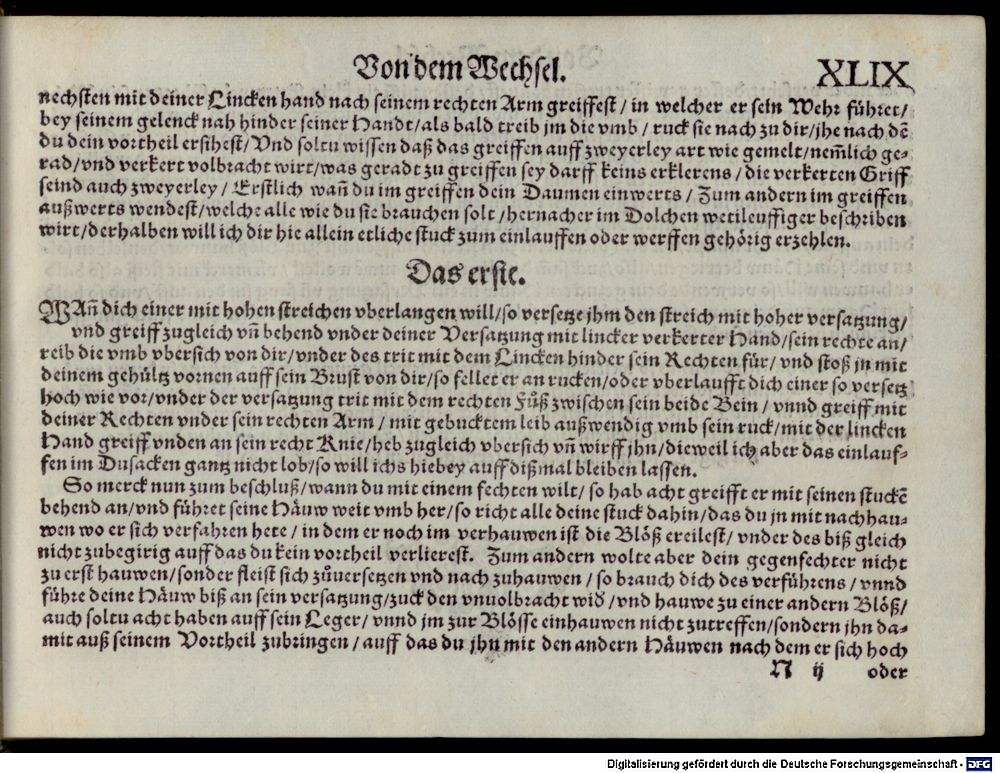 Von dem Wechsel.
XLIX
nechsten mit deiner Lincken hand nach seinem rechten Arm greiffest / in welcher er sein Wehr führet/
bey seinem gelenck nah hinder seiner Handt/als bald treib jm die vmb / ruck sie nach zu dir/jhe nach dē
du dein vortheil ersihest/ Vnd soltu wissen daß das greiffen auff zweyerley art wie gemelt/nem̃lich ge-
rad/vnd verkert volbracht wirt/was geradt zu greiffen sey darff keins erklerens / die verkerten Griff
seind auch zweyerley / Erstlich wañ du im greiffen dein Daumen einwerts / Zum andern im greiffen
außwerts wendest/welche alle wie du sie brauchen solt / hernacher im Dolchen wetileuffiger beschriben
wirt/derhalben will ich dir hie allein etliche stuck zum einlauffen oder werffen gehörig erzehlen.
Das erste.
WAñ dich einer mit hohen streichen vberlangen will/so versetze jhm den streich mit hoher versatzung/
vnd greiff zugleich vñ behend vnder deiner Versatzung mit lincker verkerter Hand/sein rechte an/
reib die vmb vbersich von dir/vnder des trit mit dem Lincken hinder sein Rechten für/ vnd stoß jn mit
deinem gehültz vornen auff sein Brust von dir/so fellet er an rucken/oder vberlaufft dich einer so versetz
hoch wie vor/vnder der versatzung trit mit dem rechten Fůß zwischen sein beide Bein / vnnd greiff mit
deiner Rechten vnder sein rechten Arm / mit gebucktem leib außwendig vmb sein ruck/mit der lincken
Hand greiff vnden an sein recht Knie/heb zugleich vbersich vñ wirff jhn/dieweil ich aber das einlauf-
fen im Dusacken gantz nicht lob/so will ichs hiebey auff dißmal bleiben lassen.
So merck nun zum beschluß/wann du mit einem fechten wilt/ so hab acht greifft er mit seinen stuckē
behend an/vnd führet seine Häuw weit vmb her/so richt alle deine stuck dahin/das du jn mit nachhau-
wen wo er sich verfahren hete / in dem er noch im verhauwen ist die Blöß ereilest/ vnder des biß gleich
nicht zubegirig auff das du kein vortheil verlierest. Zum andern wolte aber dein gegenfechter nicht
zu erst hauwen/sonder fleist sich zůuersetzen vnd nach zuhauwen / so brauch dich des verführens / vnnd
führe deine Häuw biß an sein versatzung/zuck den vnuolbracht wid̕ / vnd hauwe zu einer andern Blöß/
auch soltu acht haben auff sein Leger/ vnnd jm zur Blösse einhauwen nicht zutreffen/sondern jhn da-
mit auß seinem Vortheil zubringen / auff das du jhn mit den andern Häuwen nach dem er sich hoch
N ij oder
Digitalisierung gefördert durch die Deutsche Forschungsgemeinschaft - DFG